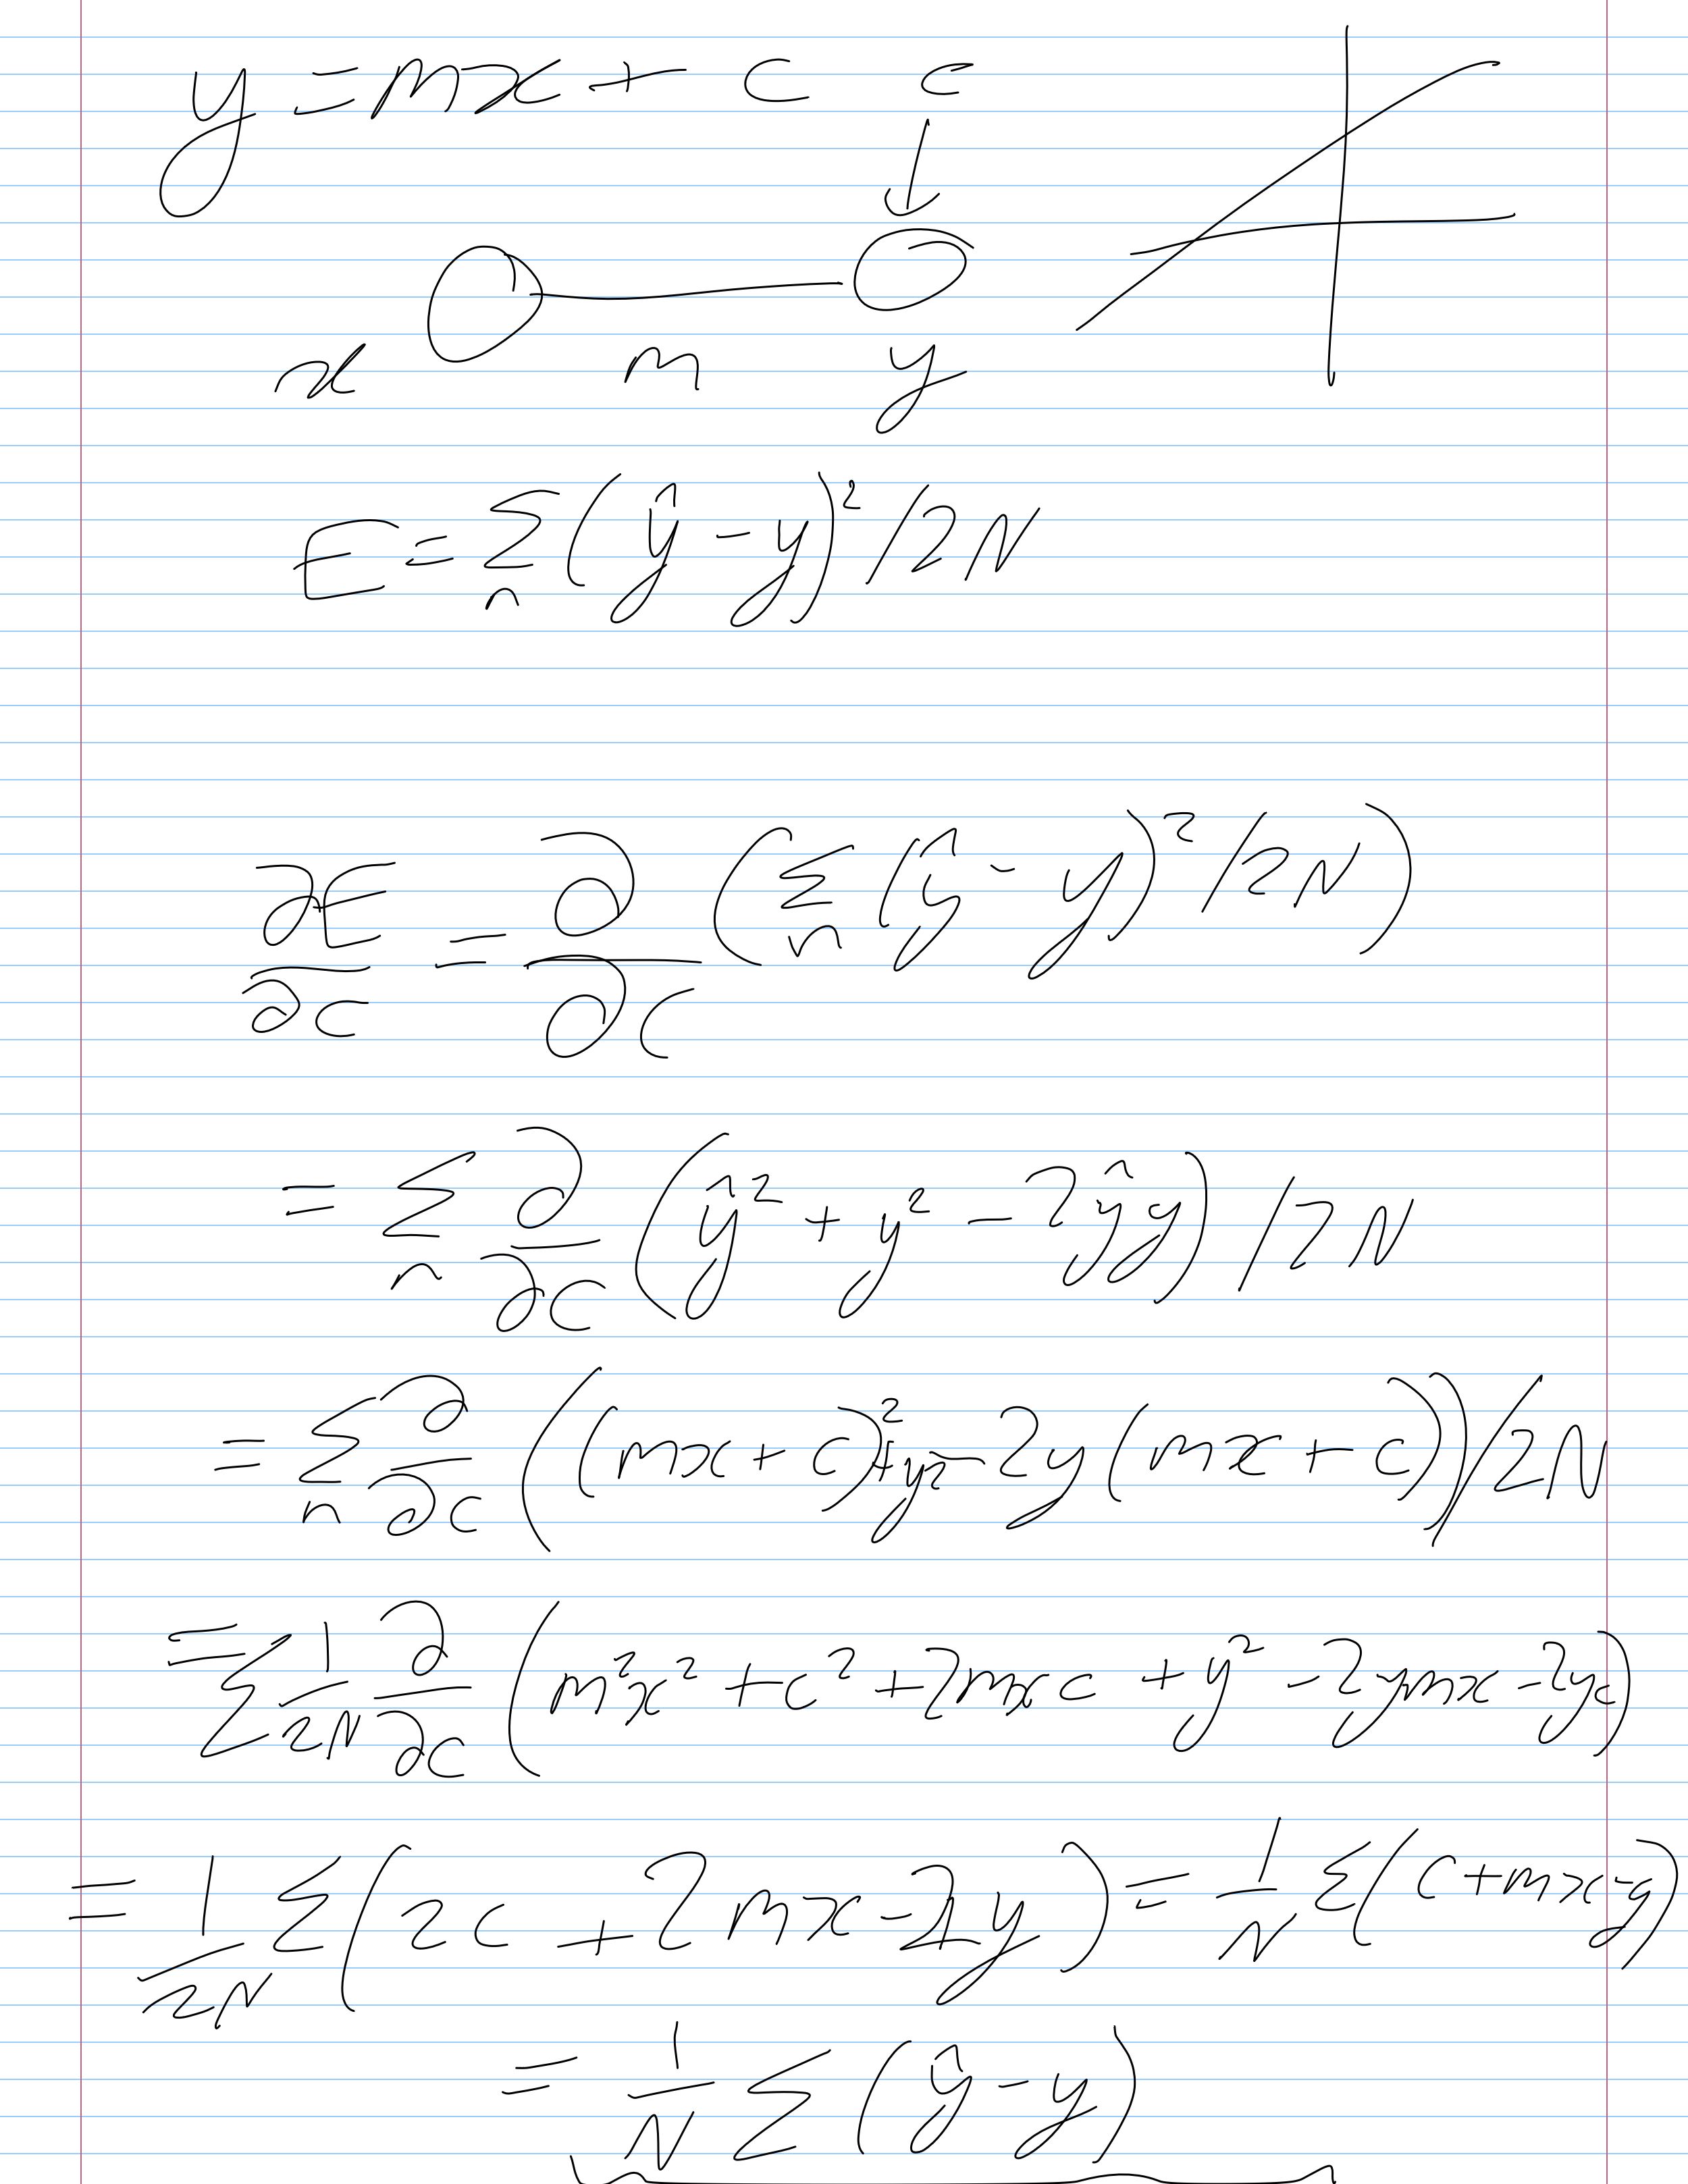 y = mx + c c
x m y
E = Σ_n (ŷ - y)² / 2N
∂E/∂c = ∂/∂c (Σ_n (ŷ - y)² / 2N)
= Σ_n ∂/∂c (ŷ² + y² - 2ŷy) / 2N
= Σ_n ∂/∂c ((mx + c)² + y² - 2y(mx + c)) / 2N
= Σ 1/2N ∂/∂c (m²x² + c² + 2mxc + y² - 2ymx - 2yc)
= 1/2N Σ (2c + 2mx - 2y) = 1/N Σ (c + mx - y)
= 1/N Σ (ŷ - y)